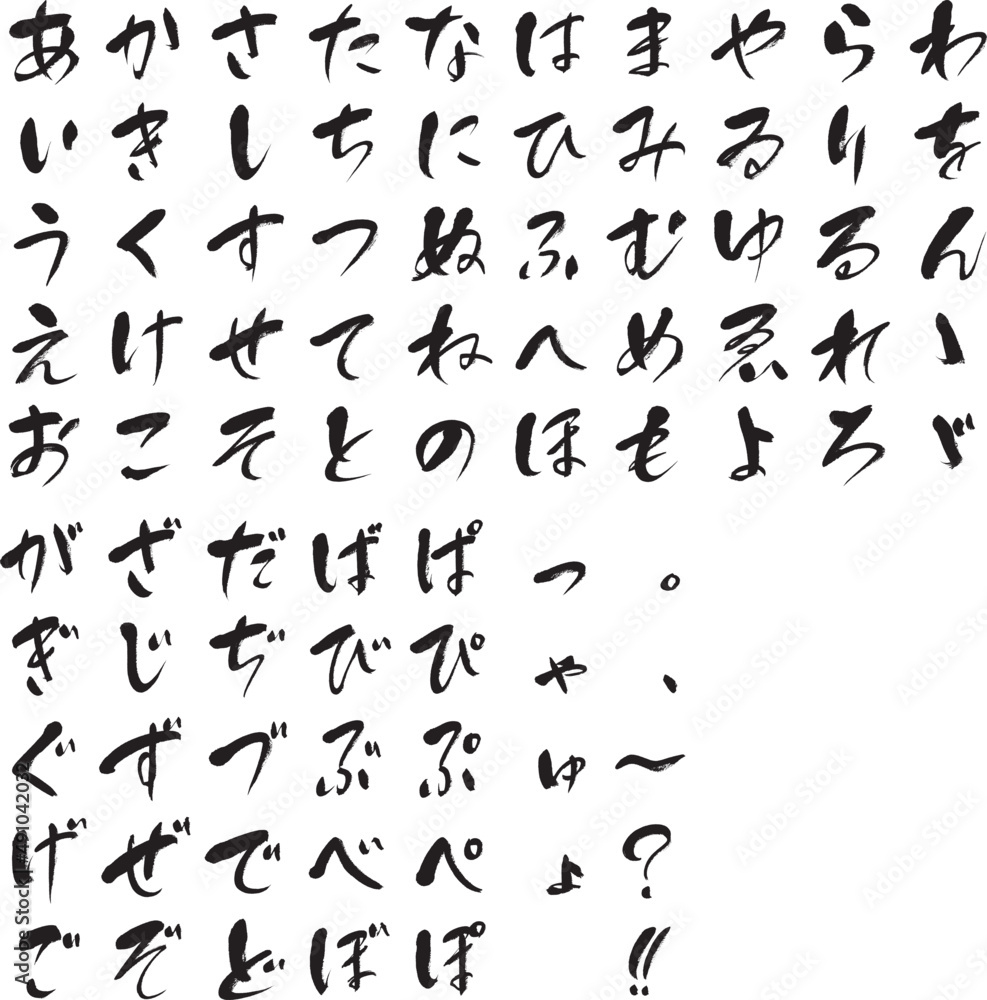 あかさたなはまやらわ
いきしちにひみゐりを
うくすつぬふむゆるん
えけせてねへめゑれゝ
おこそとのほもよろゞ
がざだばぱっ。
ぎじぢびぴゃ、
ぐずづぶぷゅ～
げぜでべぺょ?
ごぞどぼぽ!!
Adobe Stock | #491042032